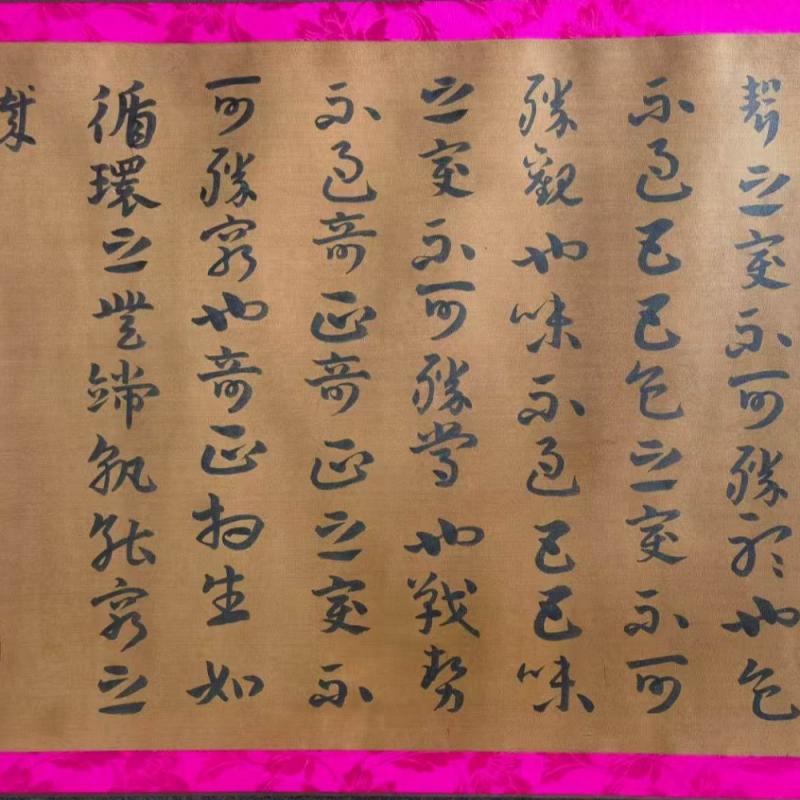 聲之變不可勝聽也色
不過五五色之變不可
勝觀也味不過五五味
之變不可勝嘗也戰勢
不過奇正奇正之變不
可勝窮也奇正相生如
循環之無端孰能窮之